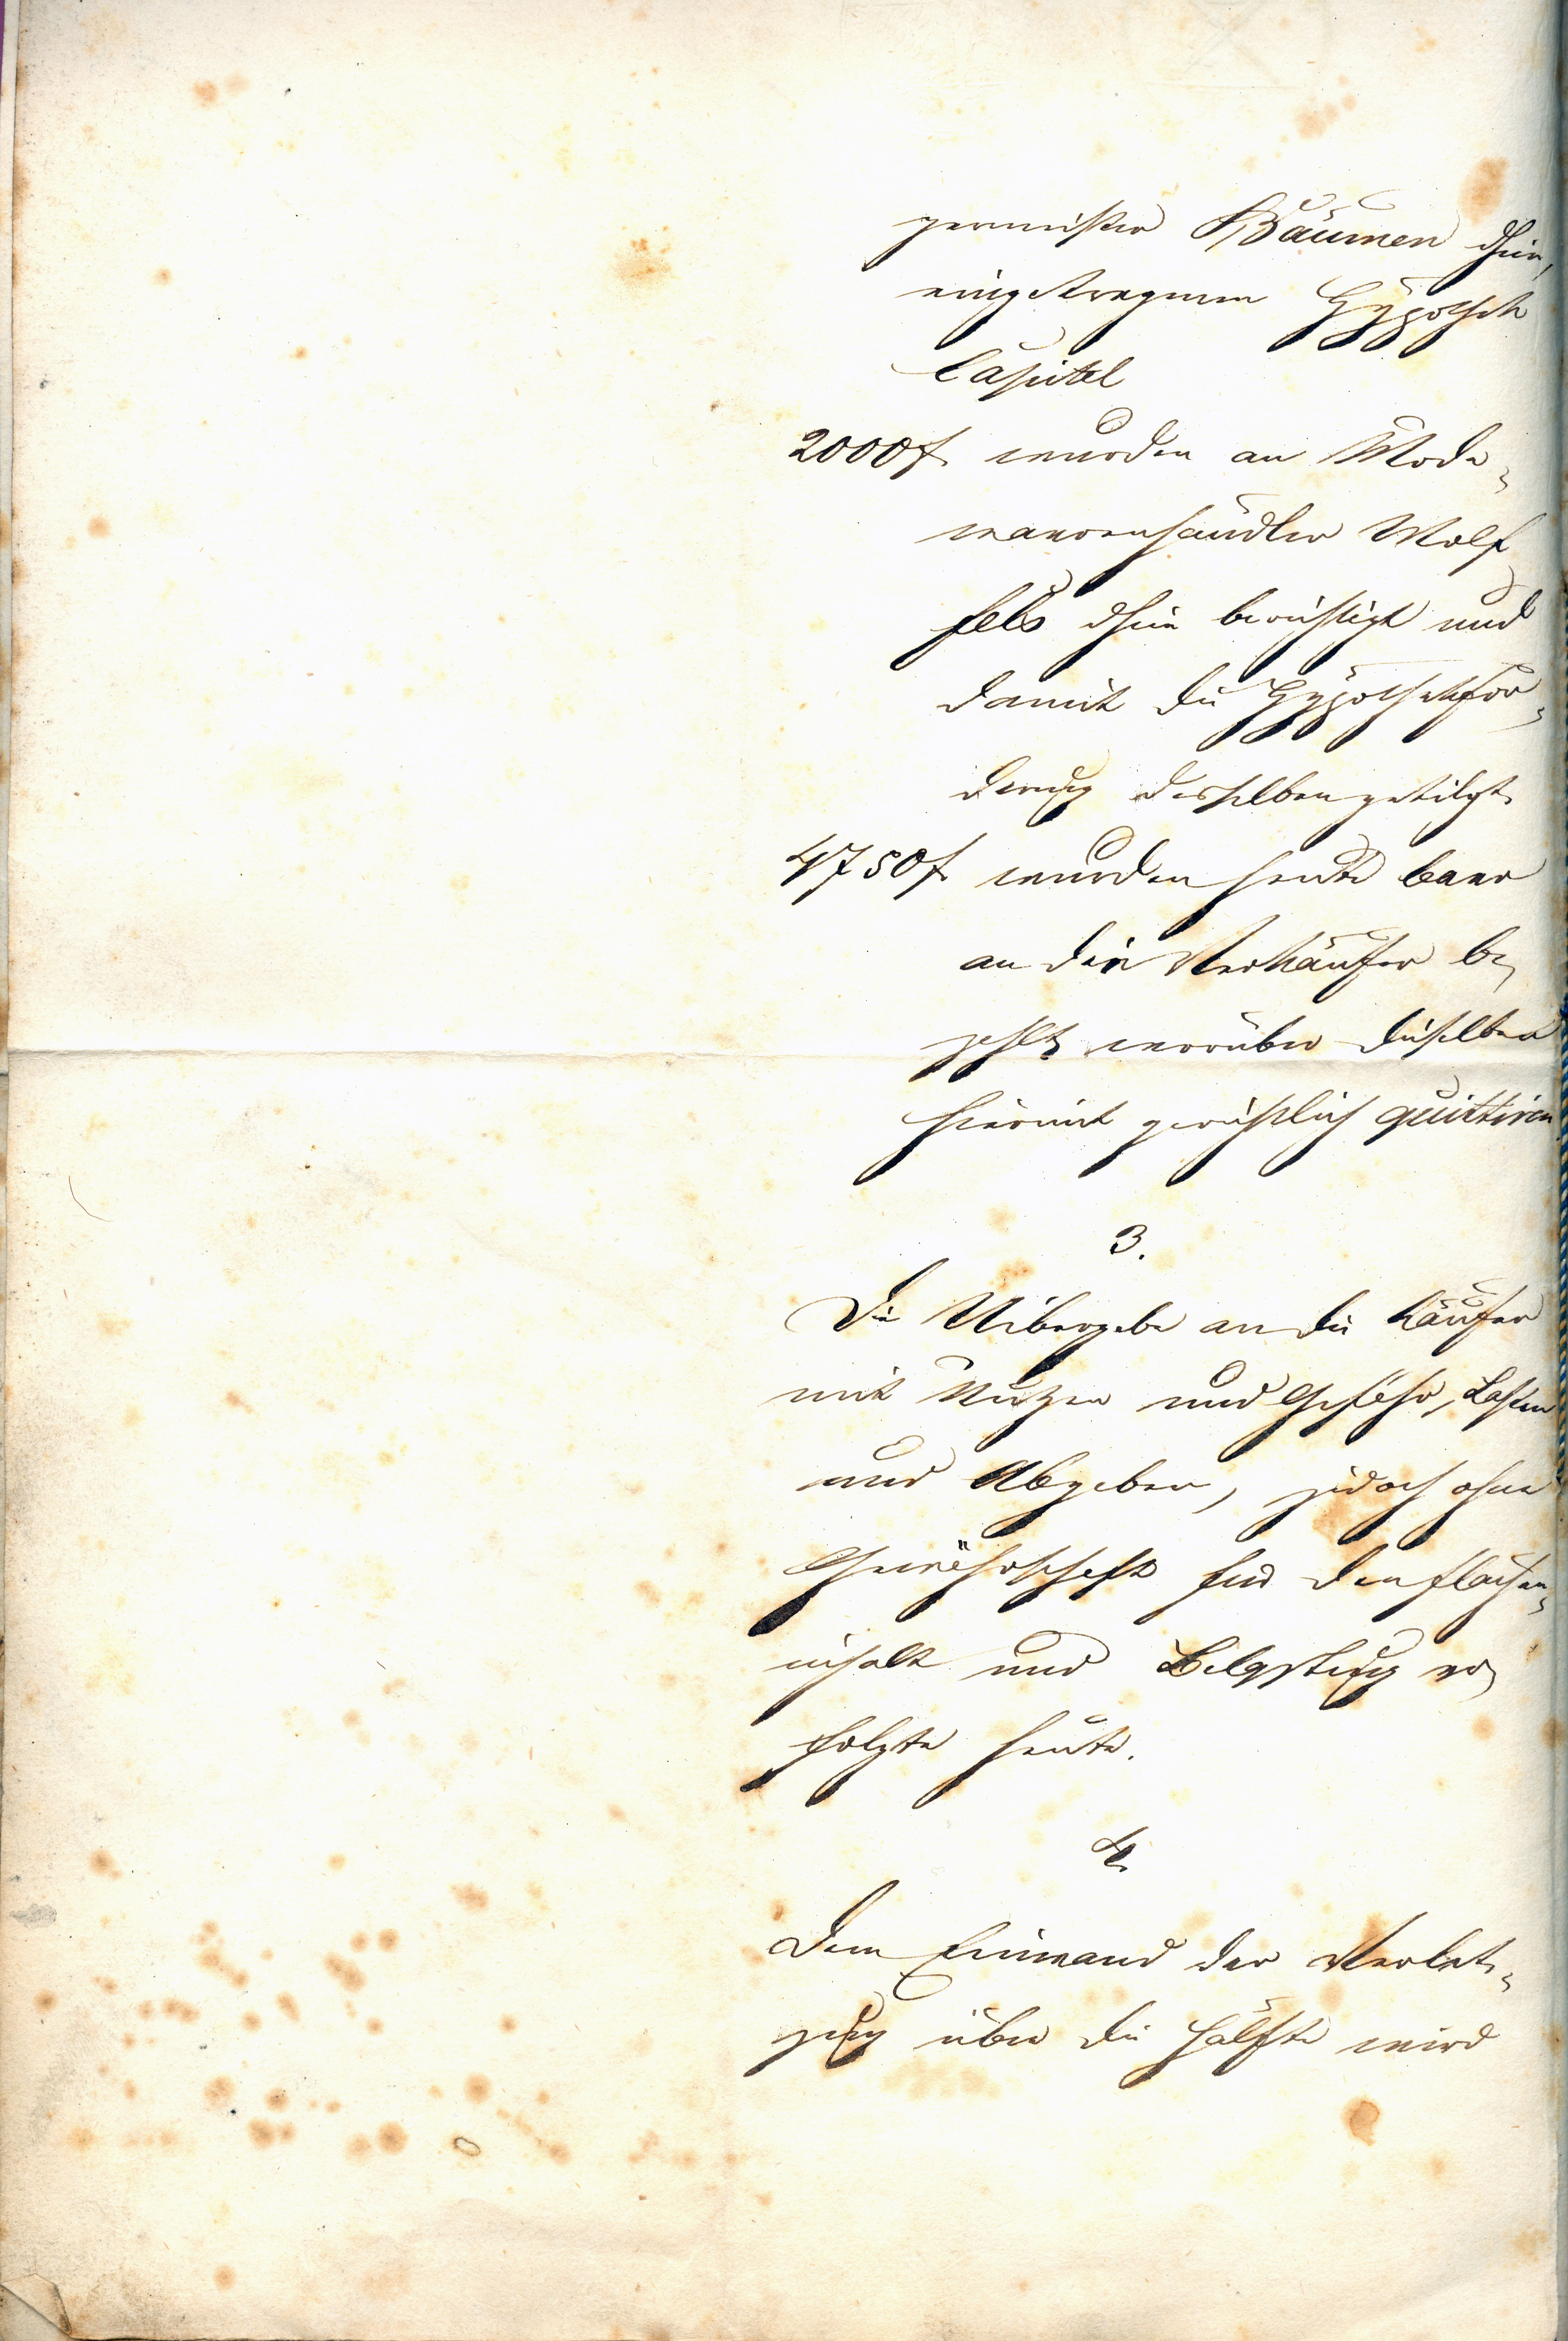 germeister Bäumen dhier,
eingetragenen Hypothek
Capitel
2000 f wurden an Mode-
waarenhändler Wolf
fels dhier berichtigt und
damit die Hypothekfor-
derung desselben getilgt.
4750 f wurden heute baar
an die Verkäufer be-
zahlt, worüber dieselben
hiermit gerichtlich quittiren
3.
Die Uibergabe an die Käufer
mit Nutzen und Gefahr, Lasten
und Abgaben, jedoch ohne
Gewährschaft für den Flächen-
inhalt und Belastung er-
folgte heute.
4.
Dem Einwand der Verlet-
zung über die Hälfte wird